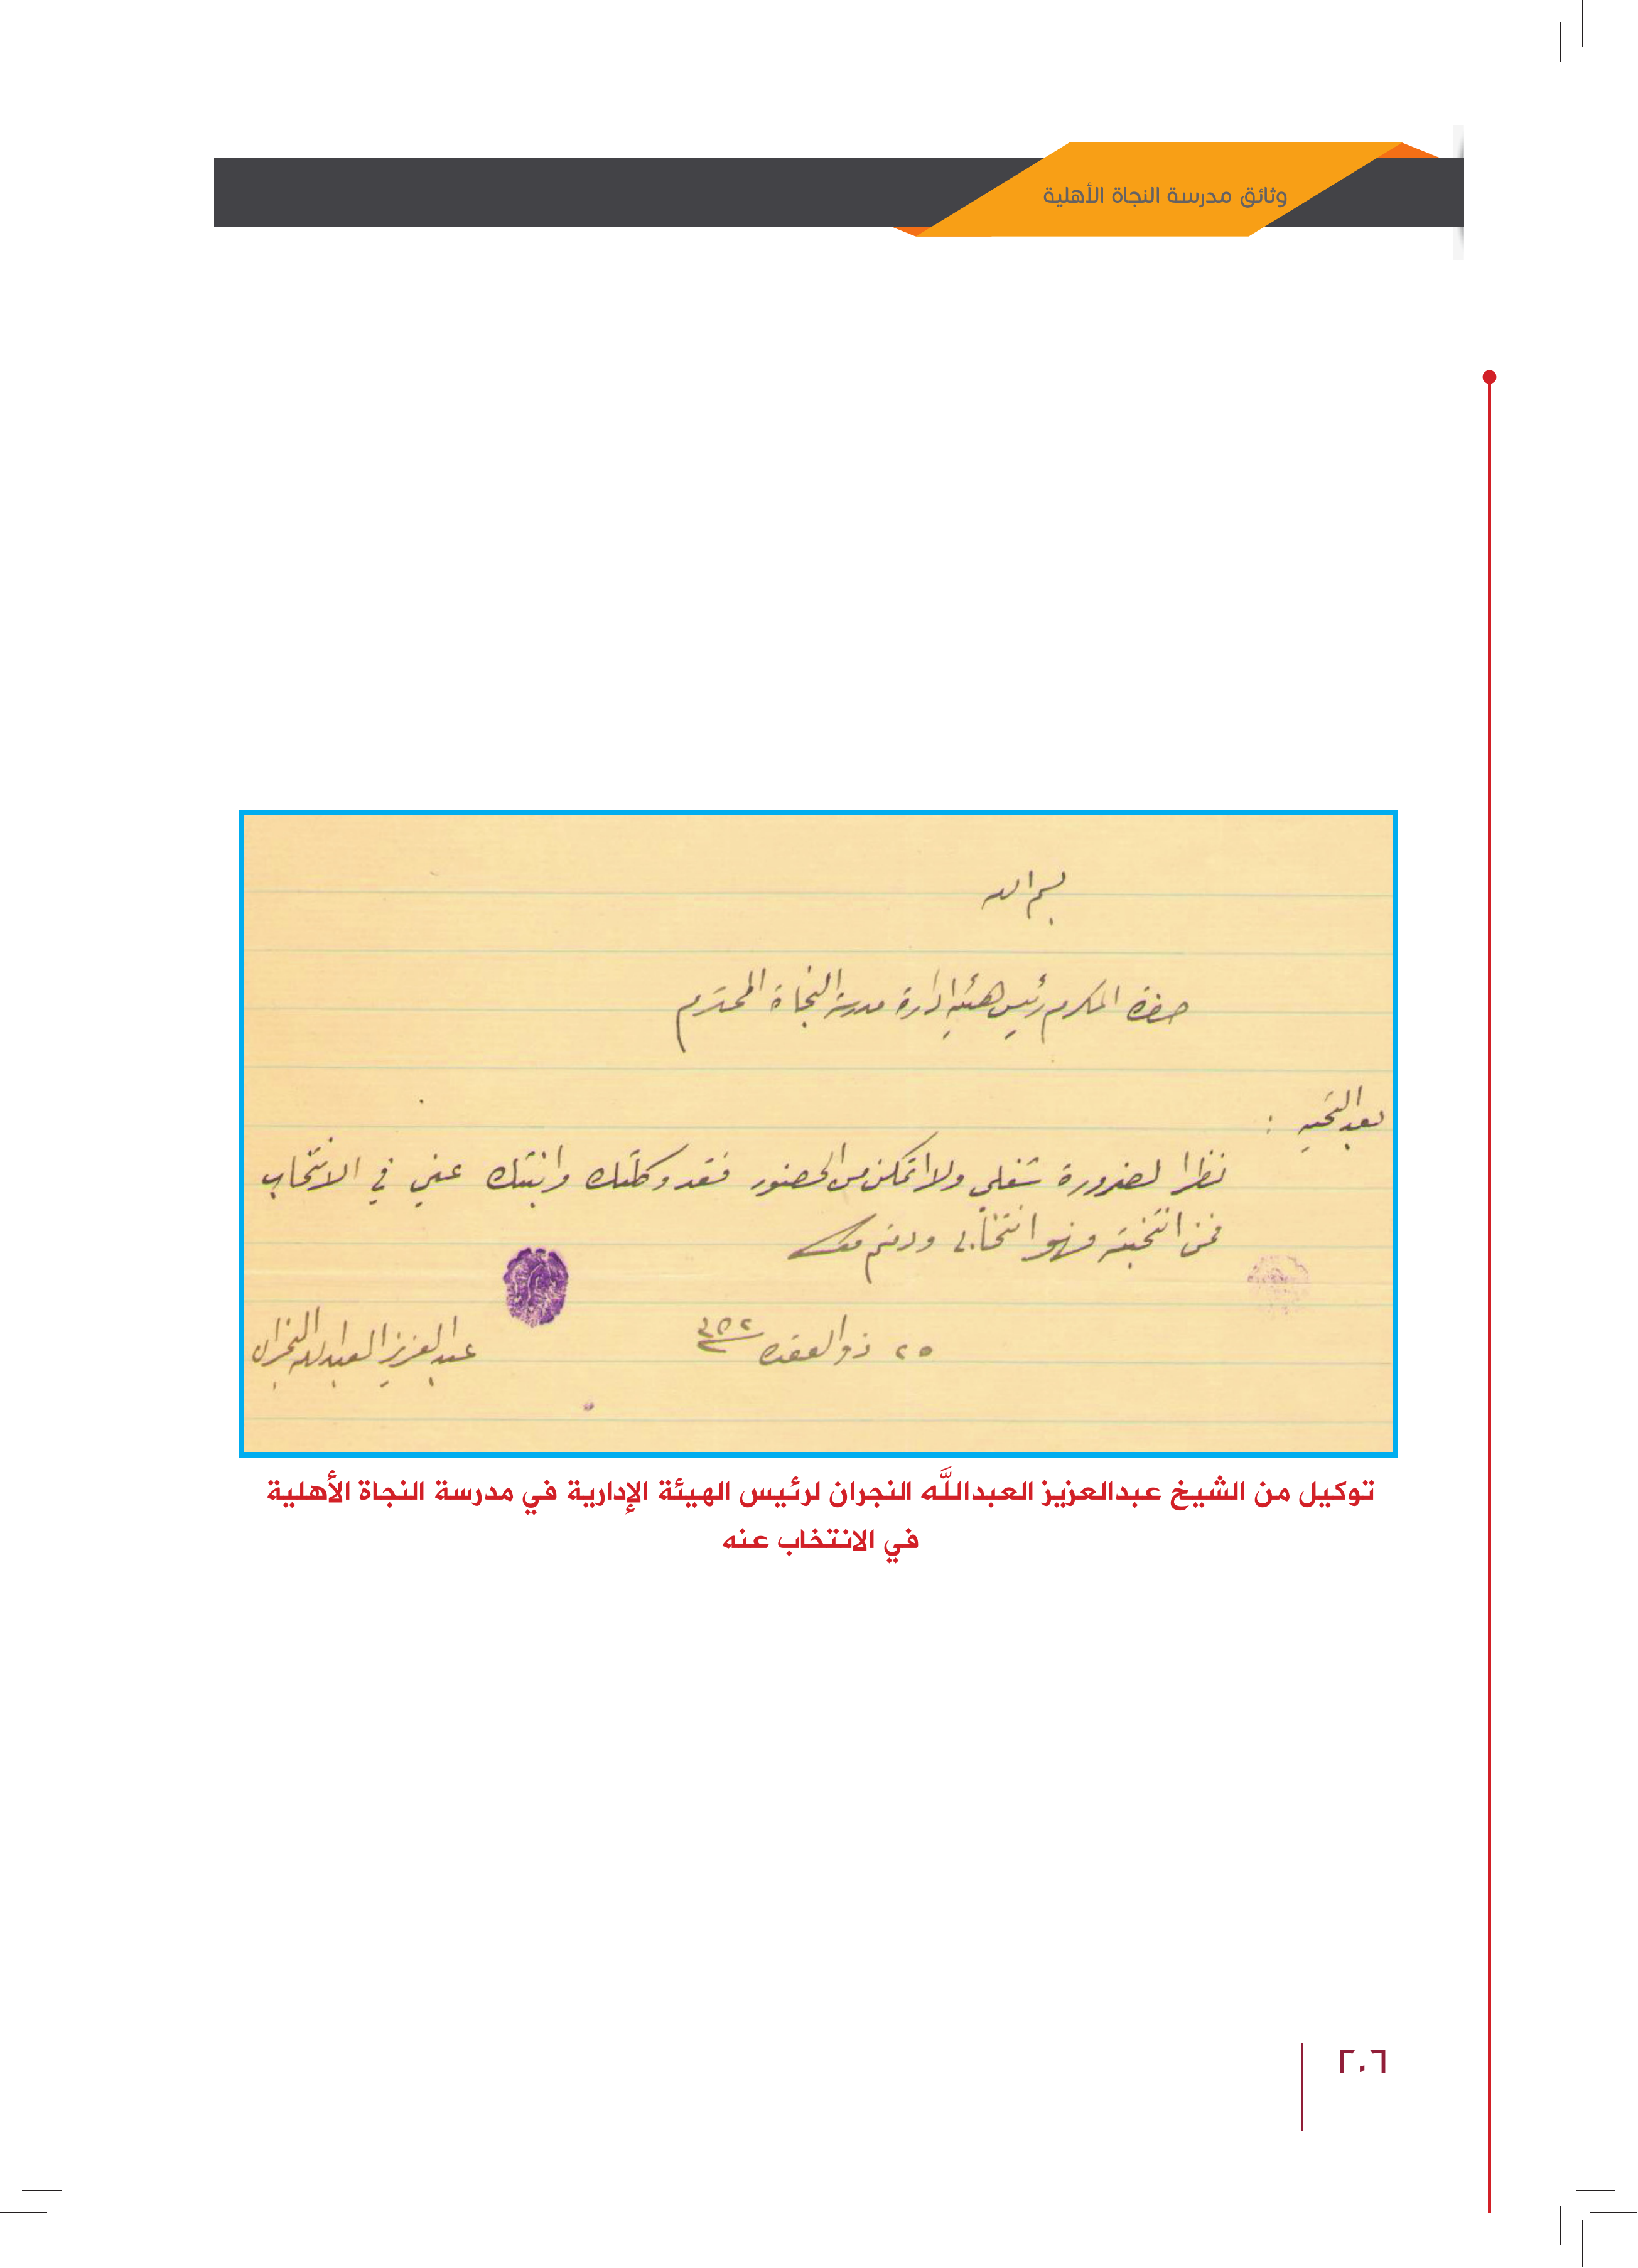 وثائق مدرسة النجاة الأهلية
بسم الله
حضرة المكرم رئيس هيئة ادارة مدرسة النجاة المحترم
بعد التحيه :
نظرا لضرورة شغلي ولا اتمكن من الحضور فقد وكلتك وانبتك عني في الانتخاب
فمن انتخبته فهو انتخابي ودمتم
٢٥ ذو العقده
عبد العزيز العبدالله النجران
توكيل من الشيخ عبدالعزيز العبداللَّه النجران لرئيس الهيئة الإدارية في مدرسة النجاة الأهلية
في الانتخاب عنه
٢٠٦